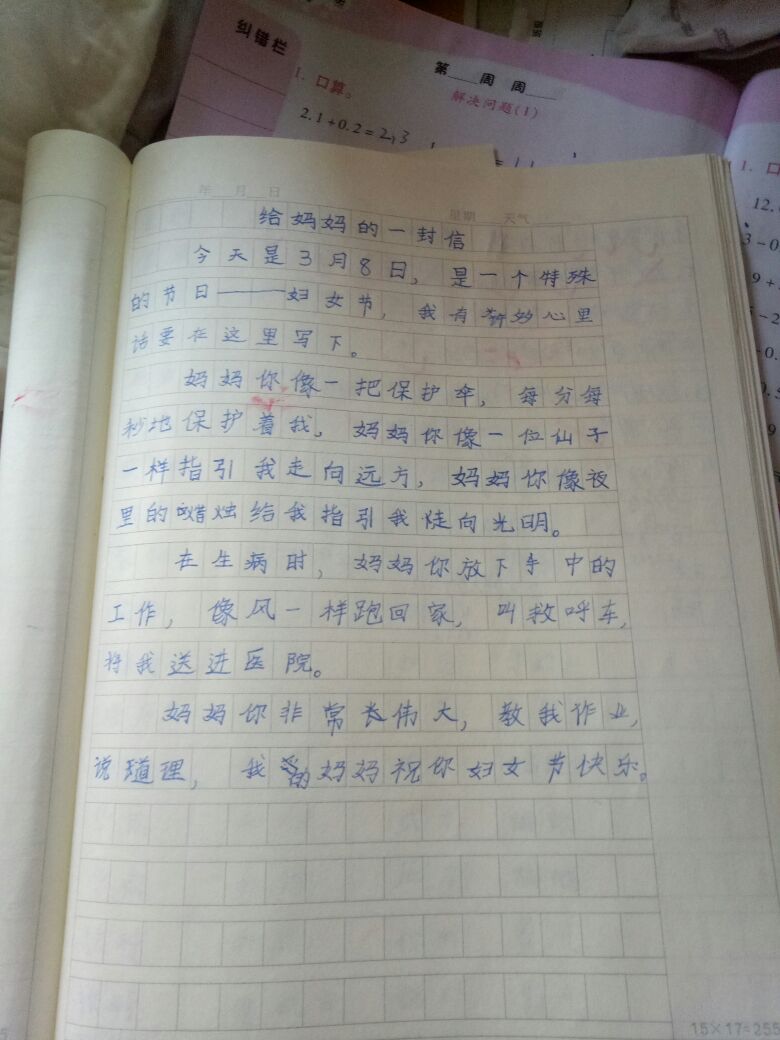 纠错栏
第 周 周
1. 口算。
解决问题(1)
2.1+0.2=2.3
1. 口
12.
3-0
9+
-2
-0.
0.5
9
年 月 日
星期 天气
给妈妈的一封信
今天是3月8日，是一个特殊
的节日——妇女节，我有许多心里
话要在这里写下。
妈妈你像一把保护伞，每分每
秒地保护着我，妈妈你像一位仙子
一样指引我走向远方，妈妈你像夜
里的蜡烛给我指引我走向光明。
在生病时，妈妈你放下手中的
工作，像风一样跑回家，叫救呼车，
将我送进医院。
妈妈你非常长伟大，教我作业，
说道理，我的妈妈祝你妇女节快乐。
15×17=255